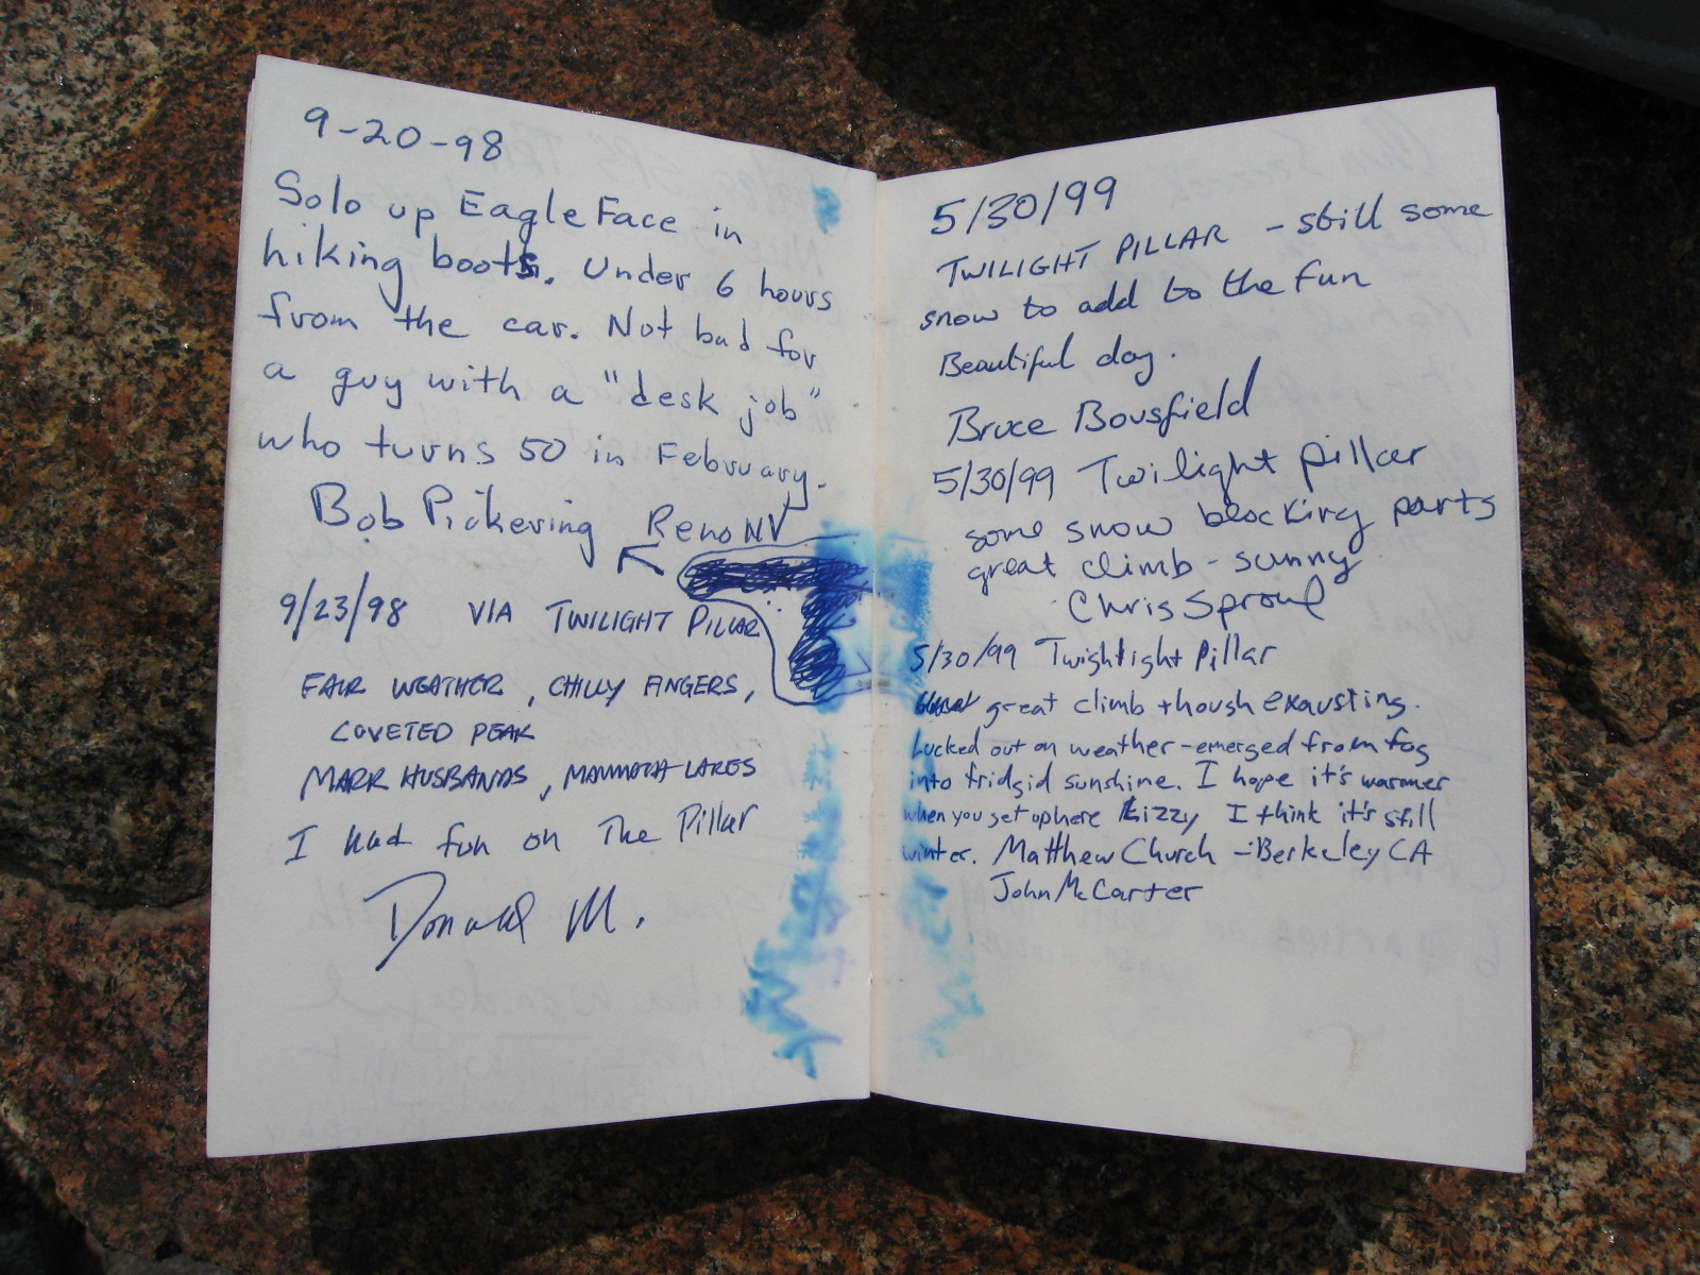 9-20-98
Solo up Eagle Face in
hiking boots. Under 6 hours
from the car. Not bad for
a guy with a "desk job"
who turns 50 in February.
Bob Pickering Reno NV
9/23/98 VIA TWILIGHT PILLAR
FAIR WEATHER, CHILLY FINGERS,
COVETED PEAK
MARK HUSBANDS, MAMMOTH LAKES
I had fun on The Pillar
Donald M.
5/30/99
TWILIGHT PILLAR - still some
snow to add to the fun
Beautiful day.
Bruce Bousfield
5/30/99 Twilight pillar
some snow blocking parts
great climb - sunny
Chris Sproul
5/30/99 Twightlight Pillar
great climb though exausting.
Lucked out on weather - emerged from fog
into fridgid sunshine. I hope it's warmer
when you get up here Lizzy I think it's still
winter. Matthew Church - Berkeley CA
John McCarter